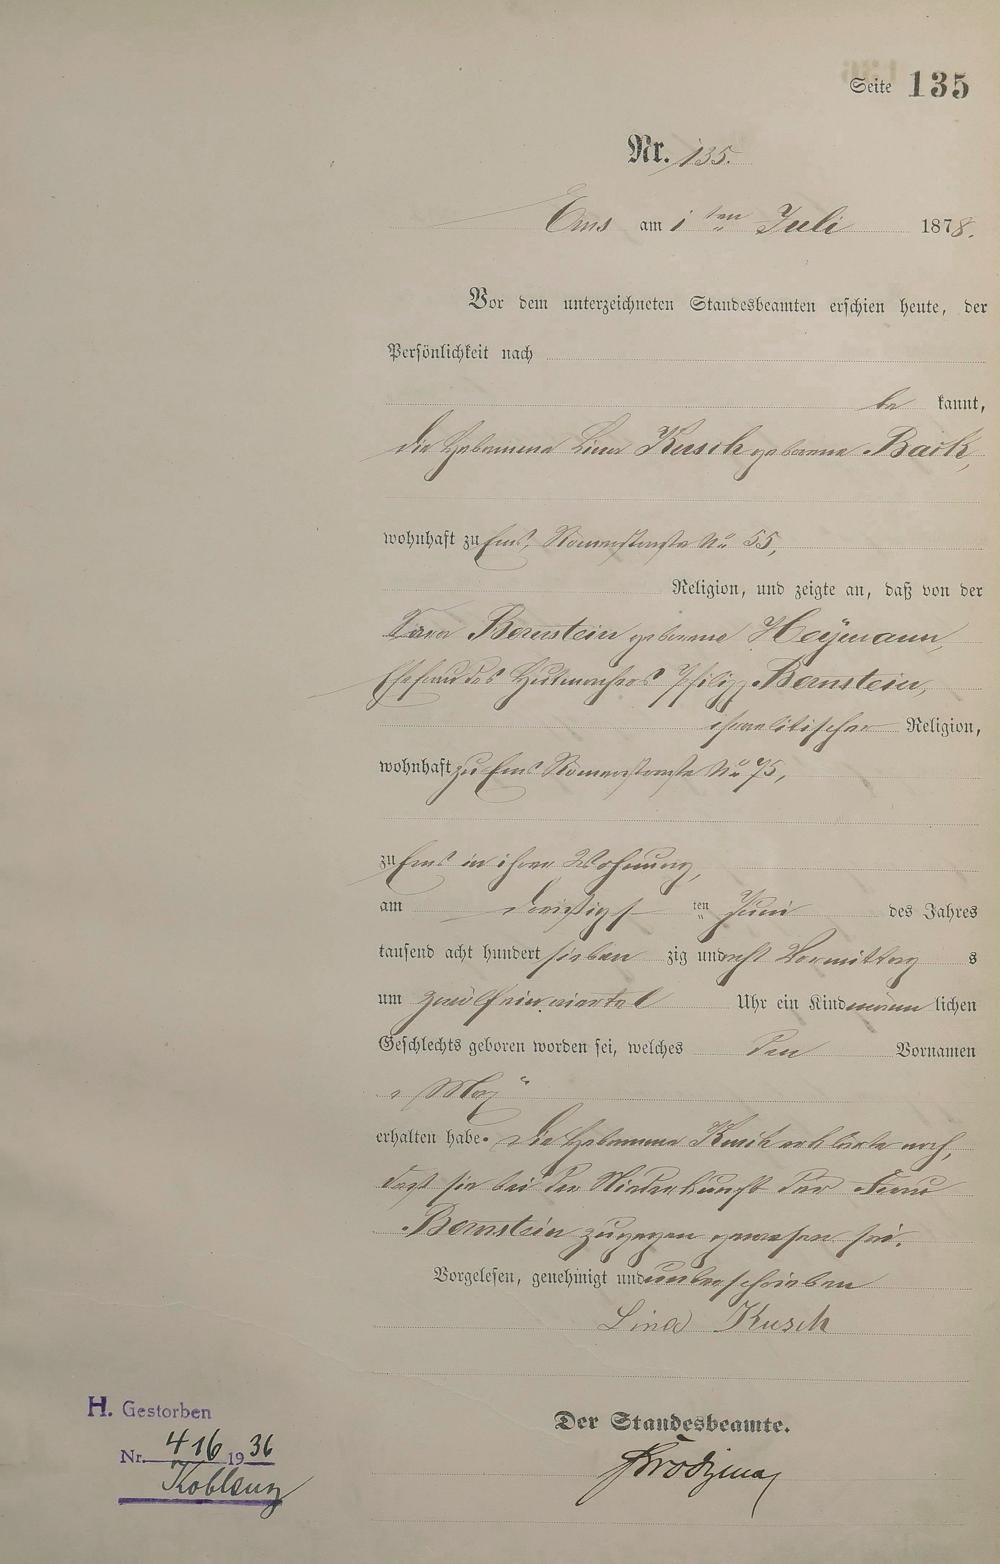 Seite 135
Nr. 135.
Ems am 1ten Juli 1878.
Vor dem unterzeichneten Standesbeamten erschien heute, der
Persönlichkeit nach
be kannt,
die Hebamme Lina Kusch geborene Back,
wohnhaft zu Ems, Römerstraße No 55,
Religion, und zeigte an, daß von der
Sara Bernstein geborene Heymann,
Ehefrau des Hutmachers Philipp Bernstein,
israelitischer Religion,
wohnhaft zu Ems Römerstraße No 75,
zu Ems in ihrer Wohnung,
am dreißigsten Juni des Jahres
tausend acht hundert sieben zig und acht Vormittags
um zwölf einviertel Uhr ein Kind männ lichen
Geschlechts geboren worden sei, welches den Vornamen
„Max“
erhalten habe. Die Hebamme Kusch erklärte noch,
daß sie bei der Niederkunft der Frau
Bernstein zugegen gewesen sei.
Vorgelesen, genehmigt und unterschrieben
Lina Kusch
Der Standesbeamte.
H. Gestorben
Nr. 416 1936
Koblenz